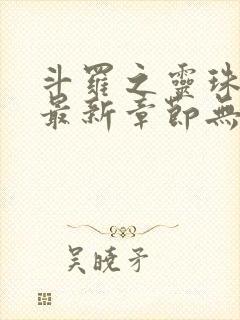 斗羅之靈珠
最新章節無
吴曉矛